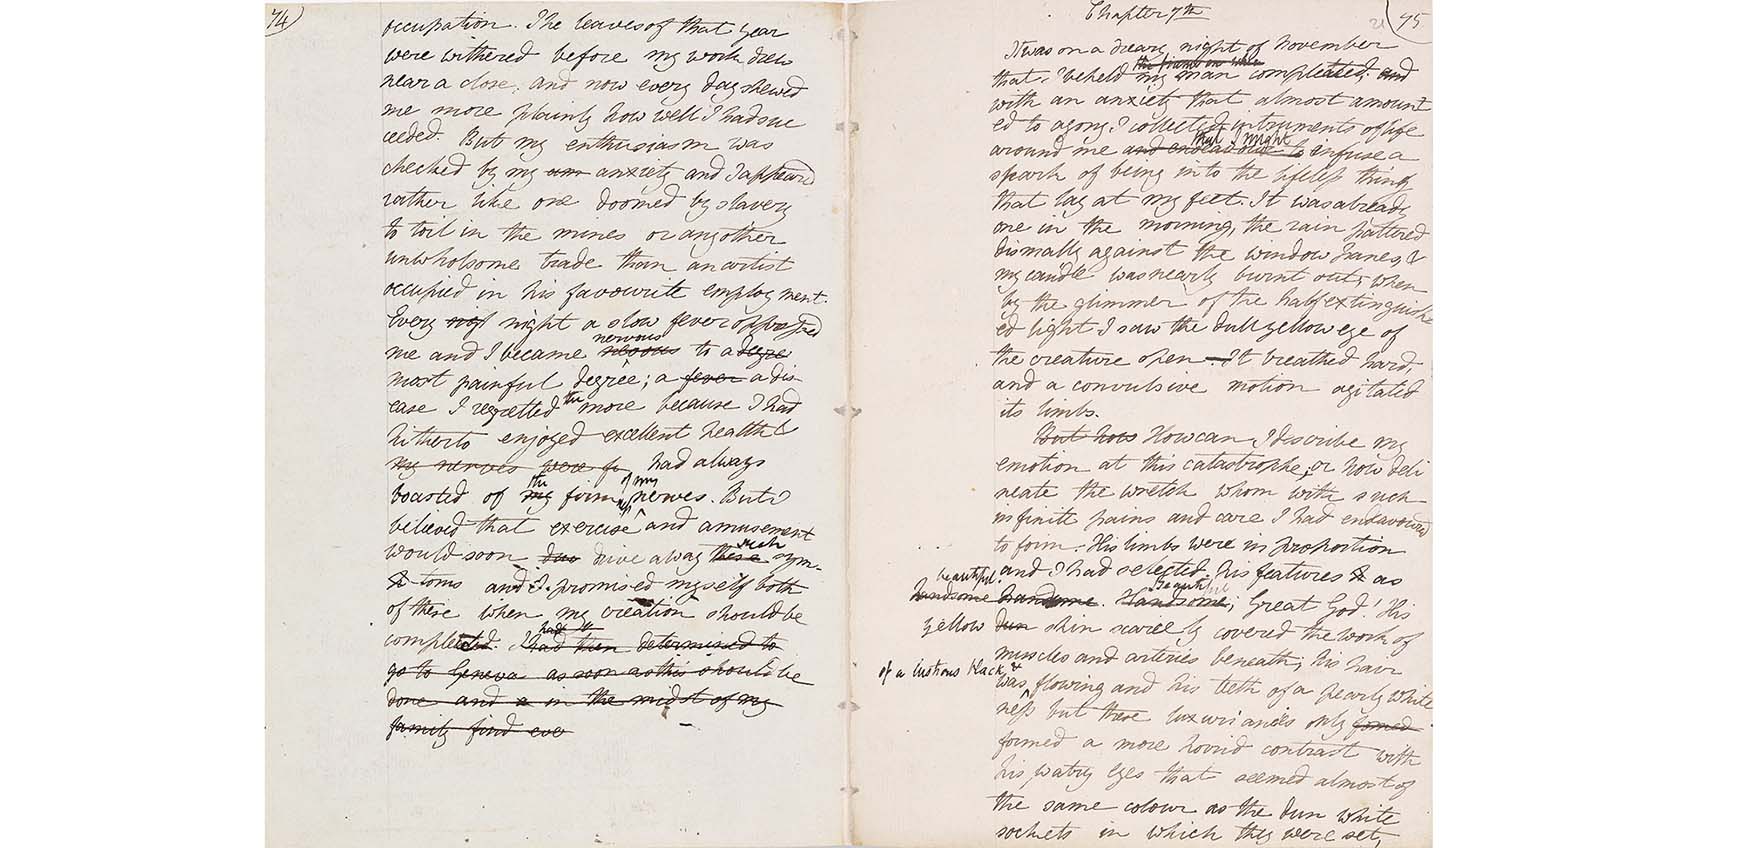 74
occupation. The leaves of that year
were withered before my work drew
near a close. and now every day shewed
me more plainly how well I had suc
ceeded. But my enthusiasm was
checked by my anxiety and I appeared
rather like one doomed by slavery
to toil in the mines or any other
unwholsome trade than an artist
occupied in his favourite employment.
Every night a slow fever oppressed
nervous
me and I became to a degre
most painful degree; a fever a dis-
ease I regretted the more because I had
hitherto enjoyed excellent health &
my nerves were fir had always
the of my
boasted of my firm nerves. But I
believed that exercise and amusement
such
would soon drive away these symp-
toms and I promised myself both
of these when my creation should be
had
compleated. I had then determined to
go to Geneva as soon as this should be
done and in the midst of my
family find eve
Chapter 7th
75
It was on a dreary night of November
that I beheld my man compleated; and
with an anxiety that almost amount
ed to agony I collected instruments of life
that I might
around me and endeavour to infuse a
spark of being into the lifeless thing
that lay at my feet. It was already
one in the morning, the rain pattered
dismally against the window panes, &
my candle was nearly burnt out, when
by the glimmer of the half extinguish
ed light I saw the dull yellow eye of
the creature open—It breathed hard,
and a convulsive motion agitated
its limbs.
But how How can I describe my
emotion at this catastrophe, or how deli
neate the wretch whom with such
infinite pains and care I had endavoured
to form. His limbs were in proportion
and I had selected his features as
beautiful. beautiful
handsome handsome. Handsome; Great God! His
yellow dun skin scarcely covered the work of
muscles and arteries beneath; his hair
of a lustrous black, &
was flowing and his teeth of a pearly white
ness but these luxuriancies only formed
formed a more horrid contrast with
his watry eyes that seemed almost of
the same colour as the dun white
sockets in which they were set,